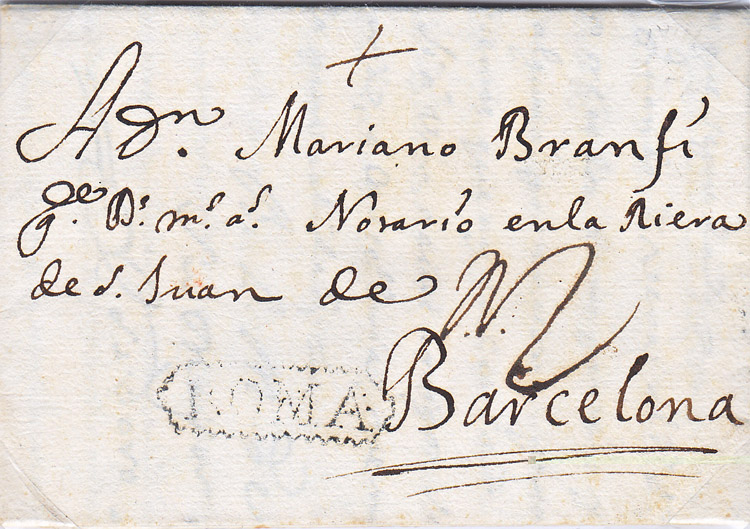 +
A Dn. Mariano Branfí
g.e D.s m.s a.s Notario en la Riera
de S. Juan de
Barcelona
ROMA